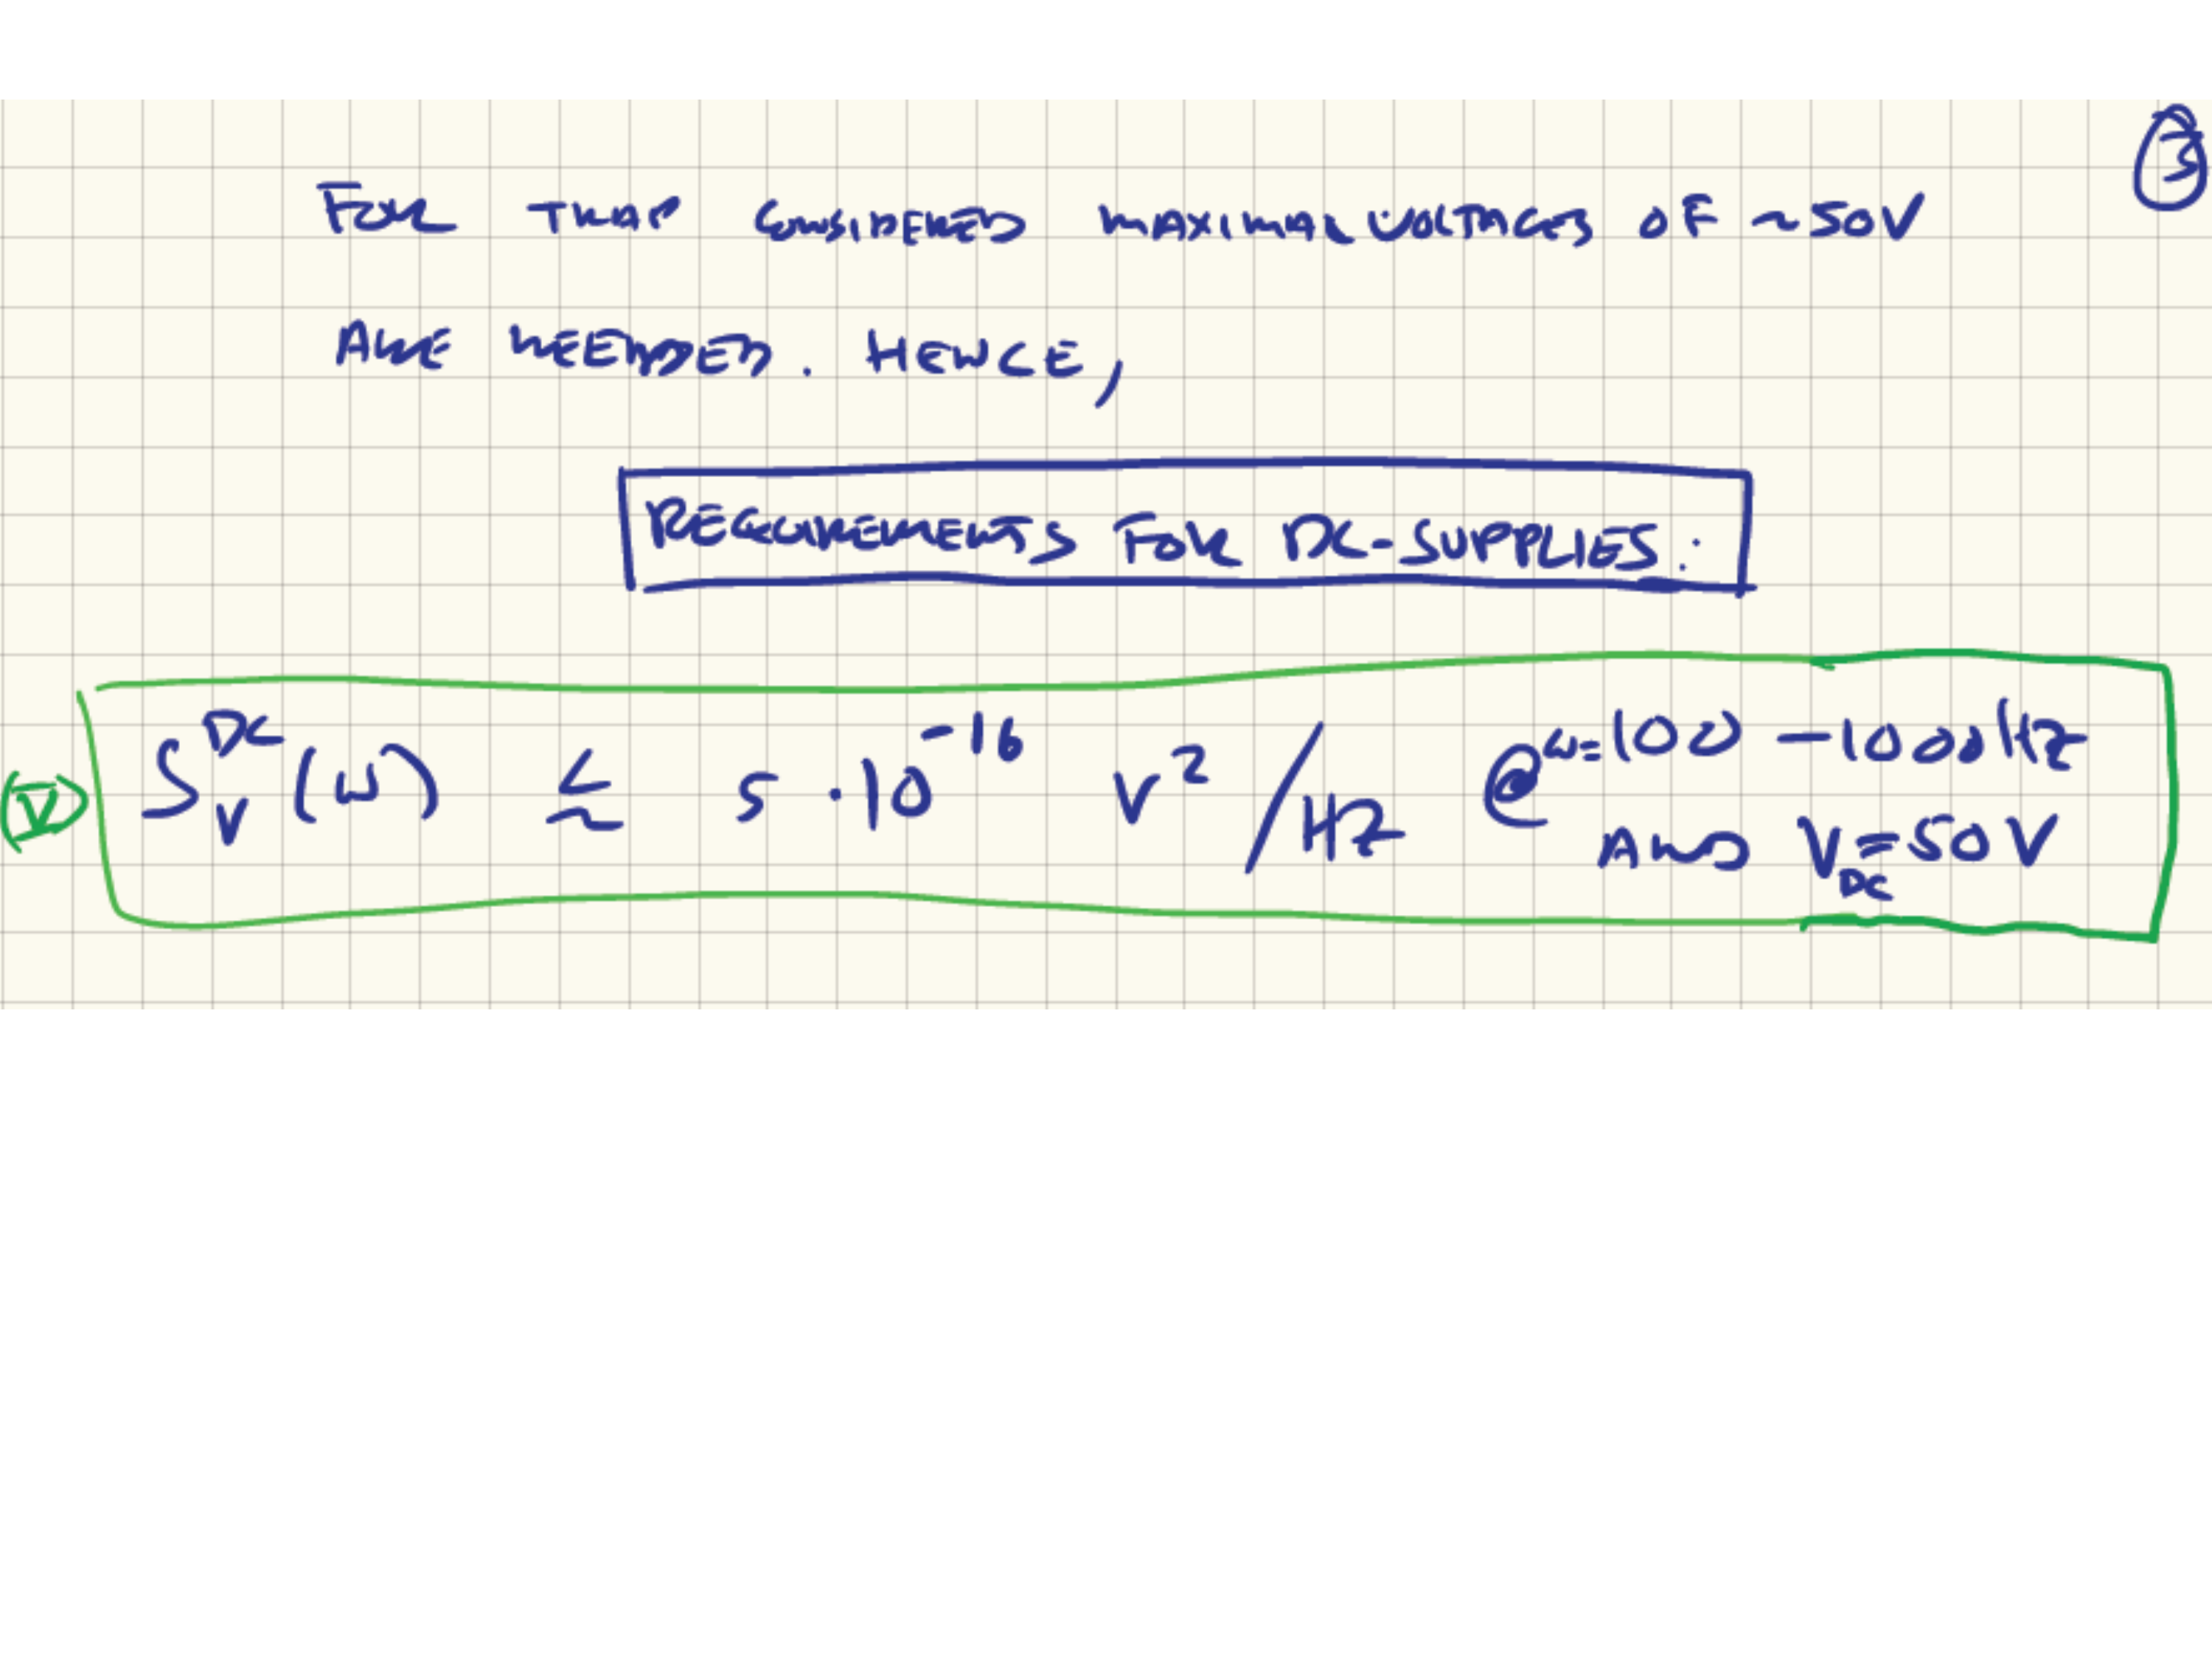 3
FOR TRAP CONSIDERED MAXIMAL VOLTAGES OF ~50V
ARE NEEDED. HENCE,
REQUIREMENTS FOR DC-SUPPLIES:
(V) S_V^DC (ω) ≲ 5·10^-16 V²/Hz @ ω=100-1000Hz
AND V_DC=50V